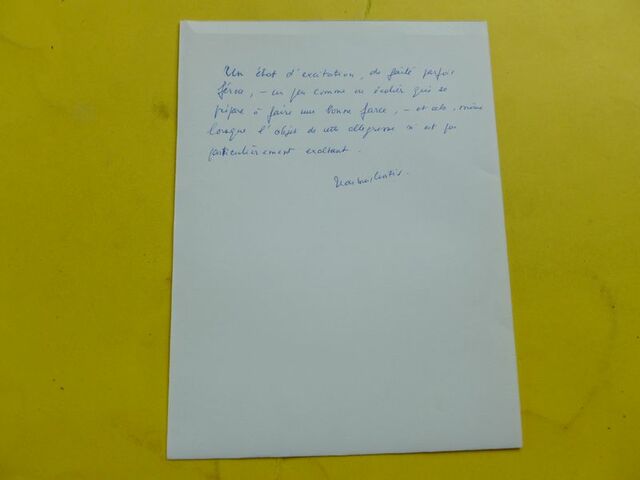 Un état d'excitation, de gaîté parfois
féroce, – un peu comme un écolier qui se
prépare à faire une bonne farce, – et cela, même
lorsque l'objet de cette allégresse n'est pas
particulièrement exaltant.